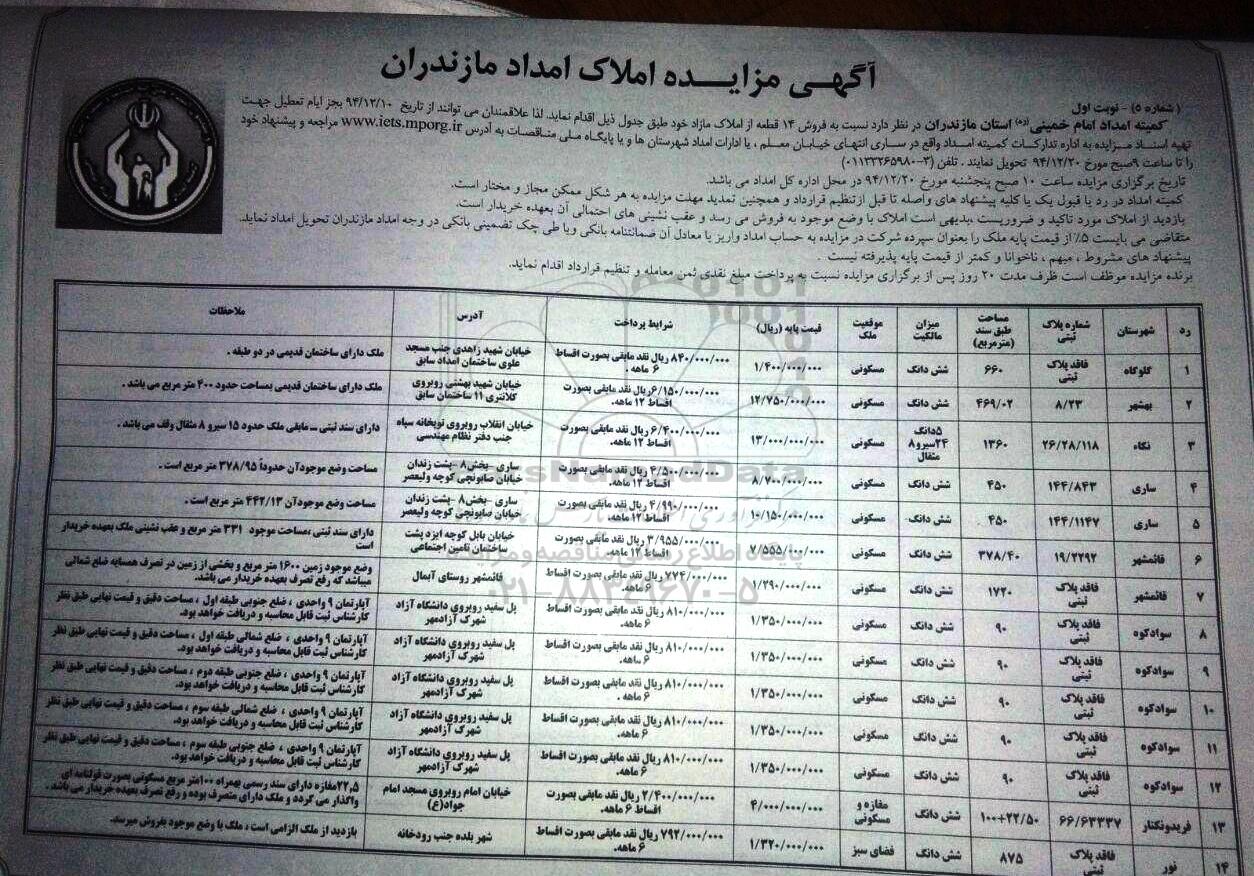 آگهی مزایـــده املاک امداد مازندران
( شماره ۵) - نوبت اول
کمیته امداد امام خمینی(ره) استان مازندران در نظر دارد نسبت به فروش ۱۴ قطعه از املاک مازاد خود طبق جدول ذیل اقدام نماید. لذا علاقمندان می توانند از تاریخ ۹۴/۱۲/۱۰ بجز ایام تعطیل جهت
تهیه اسناد مـزایده به اداره تدارکات کمیته امـداد واقع در سـاری انتهای خیـابان معـلم ، یا ادارات امداد شهرستان ها و یا پایگاه ملی مناقصات به آدرس www.iets.mporg.ir مراجعه و پیشنهاد خود
را تا ساعت ۹صبح مورخ ۹۴/۱۲/۲۰ تحویل نمایند . تلفن (۳-۰۱۱۳۳۲۶۵۹۸۰)
تاریخ برگزاری مزایده ساعت ۱۰ صبح پنجشنبه مورخ ۹۴/۱۲/۲۰ در محل اداره کل امداد می باشد.
کمیته امداد در رد یا قبول یک یا کلیه پیشنهاد های واصله تا قبل ازتنظیم قرارداد و همچنین تمدید مهلت مزایده به هر شکل ممکن مجاز و مختار است.
بازدید از املاک مورد تاکید و ضروریست ،بدیهی است املاک با وضع موجود به فروش می رسد و عقب نشینی های احتمالی آن بعهده خریدار است.
متقاضی می بایست ۵٪ از قیمت پایه ملک را بعنوان سپرده شرکت در مزایده به حساب امداد واریز یا معادل آن ضمانتنامه بانکی ویا طی چک تضمینی بانکی در وجه امداد مازندران تحویل امداد نماید.
پیشنهاد های مشروط ، مبهم ، ناخوانا و کمتر از قیمت پایه پذیرفته نیست .
برنده مزایده موظف است ظرف مدت ۲۰ روز پس از برگزاری مزایده نسبت به پرداخت مبلغ نقدی ثمن معامله و تنظیم قرارداد اقدام نماید.
رد شهرستان شماره پلاک ثبتی مساحت طبق سند (مترمربع) میزان مالکیت موقعیت ملک قیمت پایه (ریال) شرایط پرداخت آدرس ملاحظات
۱ گلوگاه فاقد پلاک ثبتی ۶۶۰ شش دانگ مسکونی ۱/۴۰۰/۰۰۰/۰۰۰ ۸۴۰/۰۰۰/۰۰۰ ریال نقد مابقی بصورت اقساط ۶ ماهه . خیابان شهید زاهدی جنب مسجد علوی ساختمان امداد سابق ملک دارای ساختمان قدیمی در دو طبقه .
۲ بهشهر ۸/۲۳ ۴۶۹/۰۲ شش دانگ مسکونی ۱۲/۷۵۰/۰۰۰/۰۰۰ ۶/۱۵۰/۰۰۰/۰۰۰ ریال نقد مابقی بصورت اقساط ۱۲ ماهه. خیابان شهید بهشتی روبروی کلانتری ۱۱ ساختمان سابق ملک دارای ساختمان قدیمی بمساحت حدود ۴۰۰ متر مربع می باشد .
۳ نکاء ۲۶/۲۸/۱۱۸ ۱۳۶۰ ۵دانگ ۲۴سیرو۸ مثقال مسکونی ۱۳/۰۰۰/۰۰۰/۰۰۰ ۶/۴۰۰/۰۰۰/۰۰۰ ریال نقد مابقی بصورت اقساط ۱۲ ماهه. خیابان انقلاب روبروی توپخانه سپاه جنب دفتر نظام مهندسی دارای سند ثبتی ــ مابقی ملک حدود ۱۵ سیرو ۸ مثقال وقف می باشد .
۴ ساری ۱۴۴/۸۴۳ ۴۵۰ شش دانگ مسکونی ۸/۷۰۰/۰۰۰/۰۰۰ ۴/۵۰۰/۰۰۰/۰۰۰ ریال نقد مابقی بصورت اقساط ۱۲ ماهه. ساری -بخش۸ -پشت زندان خیابان صابونچی کوچه ولیعصر مساحت وضع موجودآن حدوداً ۳۷۸/۹۵ متر مربع است .
۵ ساری ۱۴۴/۱۱۴۷ ۴۵۰ شش دانگ مسکونی ۱۰/۱۵۰/۰۰۰/۰۰۰ ۴/۹۹۰/۰۰۰/۰۰۰ ریال نقد مابقی بصورت اقساط ۱۲ ماهه. ساری -بخش۸ -پشت زندان خیابان صابونچی کوچه ولیعصر مساحت وضع موجودآن ۴۴۲/۱۳ متر مربع است .
۶ قائمشهر ۱۹/۲۲۹۲ ۳۷۸/۴۰ شش دانگ مسکونی ۷/۵۵۵/۰۰۰/۰۰۰ ۳/۹۵۵/۰۰۰/۰۰۰ ریال نقد مابقی بصورت اقساط ۱۲ ماهه. خیابان بابل کوچه ایزد پشت ساختمان تامین اجتماعی دارای سند ثبتی ،مساحت موجود ۳۳۱ متر مربع و عقب نشینی ملک بعهده خریدار است
۷ قائمشهر فاقد پلاک ثبتی ۱۷۲۰ شش دانگ مسکونی ۱/۲۹۰/۰۰۰/۰۰۰ ۷۷۴/۰۰۰/۰۰۰ ریال نقد مابقی بصورت اقساط ۶ ماهه. قائمشهر روستای آبمال وضع موجود زمین ۱۶۰۰ متر مربع و بخشی از زمین در تصرف همسایه ضلع شمالی میباشد که رفع تصرف بعهده خریدار می باشد.
۸ سوادکوه فاقد پلاک ثبتی ۹۰ شش دانگ مسکونی ۱/۳۵۰/۰۰۰/۰۰۰ ۸۱۰/۰۰۰/۰۰۰ ریال نقد مابقی بصورت اقساط ۶ ماهه. پل سفید روبروی دانشگاه آزاد شهرک آزادمهر آپارتمان ۹ واحدی ، ضلع جنوبی طبقه اول ، مساحت دقیق و قیمت نهایی طبق نظر کارشناس ثبت قابل محاسبه و دریافت خواهد بود.
۹ سوادکوه فاقد پلاک ثبتی ۹۰ شش دانگ مسکونی ۱/۳۵۰/۰۰۰/۰۰۰ ۸۱۰/۰۰۰/۰۰۰ ریال نقد مابقی بصورت اقساط ۶ ماهه. پل سفید روبروی دانشگاه آزاد شهرک آزادمهر آپارتمان ۹ واحدی ، ضلع شمالی طبقه اول ، مساحت دقیق و قیمت نهایی طبق نظر کارشناس ثبت قابل محاسبه و دریافت خواهد بود.
۱۰ سوادکوه فاقد پلاک ثبتی ۹۰ شش دانگ مسکونی ۱/۳۵۰/۰۰۰/۰۰۰ ۸۱۰/۰۰۰/۰۰۰ ریال نقد مابقی بصورت اقساط ۶ ماهه . پل سفید روبروی دانشگاه آزاد شهرک آزادمهر آپارتمان ۹ واحدی ، ضلع جنوبی طبقه دوم ، مساحت دقیق و قیمت نهایی طبق نظر کارشناس ثبت قابل محاسبه و دریافت خواهد بود.
۱۱ سوادکوه فاقد پلاک ثبتی ۹۰ شش دانگ مسکونی ۱/۳۵۰/۰۰۰/۰۰۰ ۸۱۰/۰۰۰/۰۰۰ ریال نقد مابقی بصورت اقساط ۶ ماهه. پل سفید روبروی دانشگاه آزاد شهرک آزادمهر آپارتمان ۹ واحدی ، ضلع شمالی طبقه سوم ، مساحت دقیق و قیمت نهایی طبق نظر کارشناس ثبت قابل محاسبه و دریافت خواهد بود.
۱۲ سوادکوه فاقد پلاک ثبتی ۹۰ شش دانگ مسکونی ۱/۳۵۰/۰۰۰/۰۰۰ ۸۱۰/۰۰۰/۰۰۰ ریال نقد مابقی بصورت اقساط ۶ ماهه. پل سفید روبروی دانشگاه آزاد شهرک آزادمهر آپارتمان ۹ واحدی ، ضلع جنوبی طبقه سوم ، مساحت دقیق و قیمت نهایی طبق نظر کارشناس ثبت قابل محاسبه و دریافت خواهد بود.
۱۳ فریدونکنار ۶۶/۶۳۳۳۷ ۱۰۰+۲۲/۵۰ شش دانگ مغازه و مسکونی ۴/۰۰۰/۰۰۰/۰۰۰ ۲/۴۰۰/۰۰۰/۰۰۰ ریال نقد مابقی بصورت اقساط ۶ ماهه. خیابان امام روبروی مسجد امام جواد(ع) ۲۲,۵مغازه دارای سند رسمی بهمراه ۱۰۰متر مربع مسکونی بصورت قولنامه ای واگذار می گردد و ملک دارای متصرف بوده و رفع تصرف بعهده خریدار می باشد .
۱۴ نور فاقد پلاک ثبتی ۸۷۵ شش دانگ فضای سبز ۱/۳۲۰/۰۰۰/۰۰۰ ۷۹۲/۰۰۰/۰۰۰ ریال نقد مابقی بصورت اقساط ۶ ماهه. شهر بلده جنب رودخانه بازدید از ملک الزامی است ، ملک با وضع موجود بفروش میرسد.